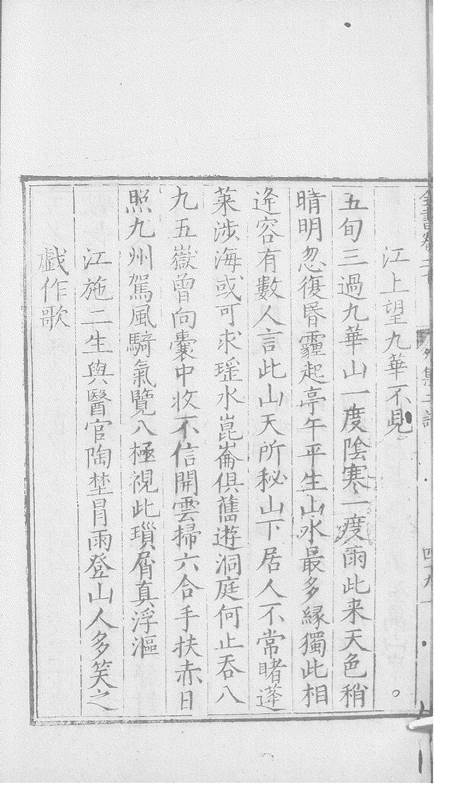 江上望九華不見
五旬三過九華山一度陰寒一度雨此来天色稍
晴明忽復昏霾起亭午平生山水最多緣獨此相
逄容有數人言此山天所秘山下居人不常睹蓬
萊涉海或可求瑤水崑崙俱舊遊洞庭何止吞八
九五嶽曾向囊中收不信開雲掃六合手扶赤日
照九州駕風騎氣覽八極視此瑣屑真浮漚
江施二生與醫官陶埜冒雨登山人多笑之
戲作歌